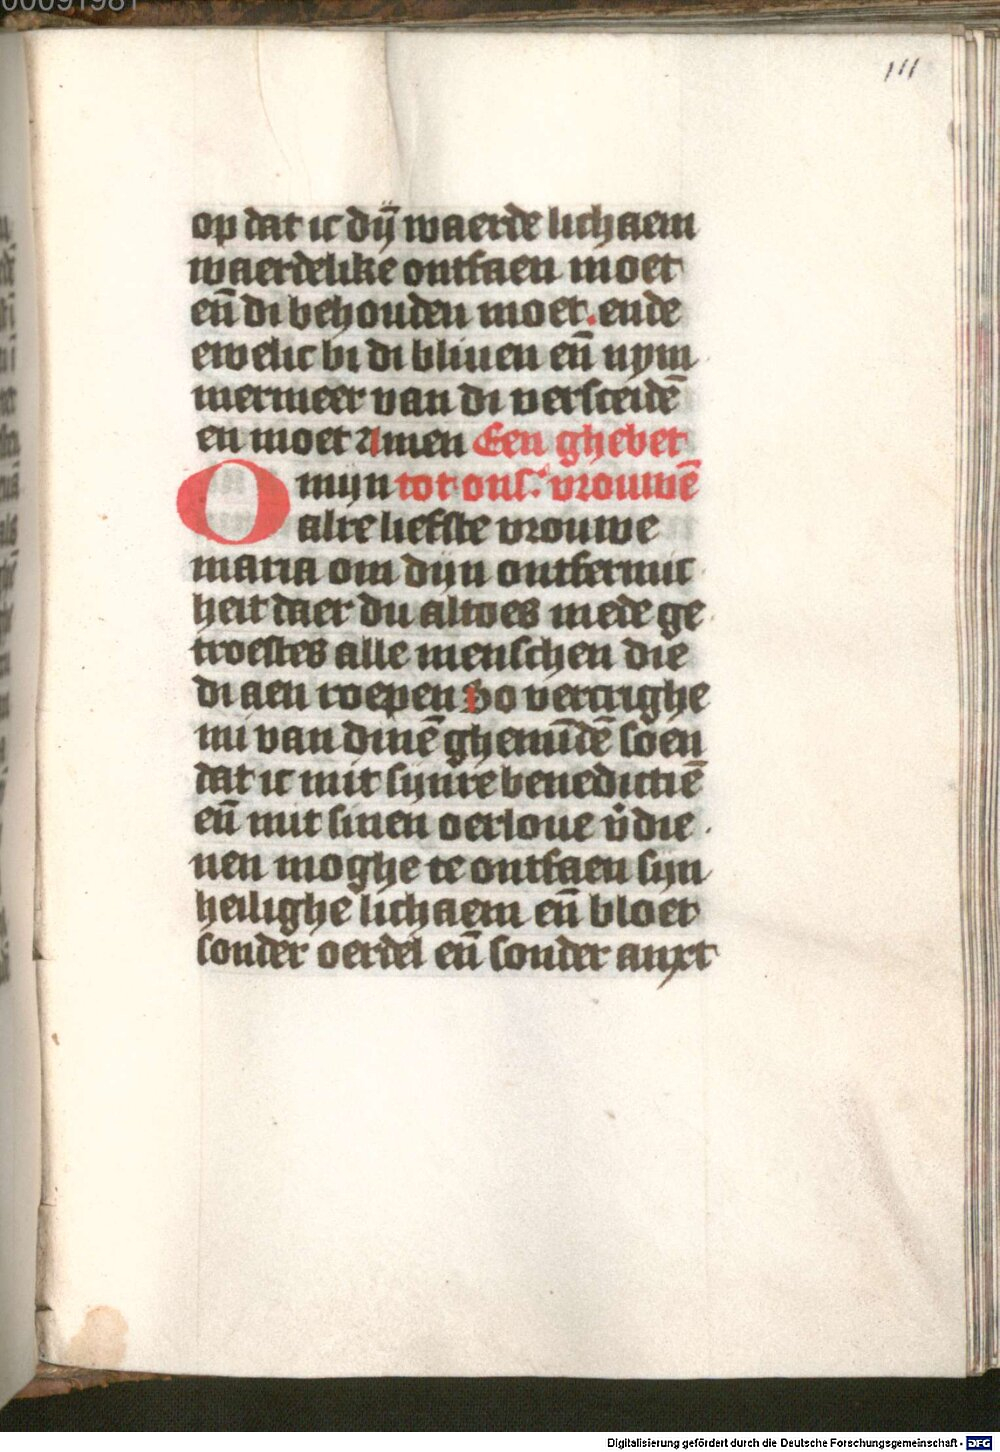 00091981
111
op dat ic dÿ̄ waerde lichaem
waerdelike ontfaen moet
en̄ di behouden moet. ende
ewelic bi di bliuen en̄ nym
mermeer van di versceidē
en moet Amen Een ghebet
O mijn tot ons. vrouwē
alre liefste vrouwe
maria om dijn ontfermic
heit daer du altoes mede ge
troestes alle menschen die
di aen roepen So vercrighe
mi van dinē ghemīdē soen
dat ic mit sijnre benedictiē
en̄ mit sinen oerloue v̉die
nen moghe te ontfaen sijn
heilighe lichaem en̄ bloet
sonder oerdel en̄ sonder anxt
Digitalisierung gefördert durch die Deutsche Forschungsgemeinschaft - DFG